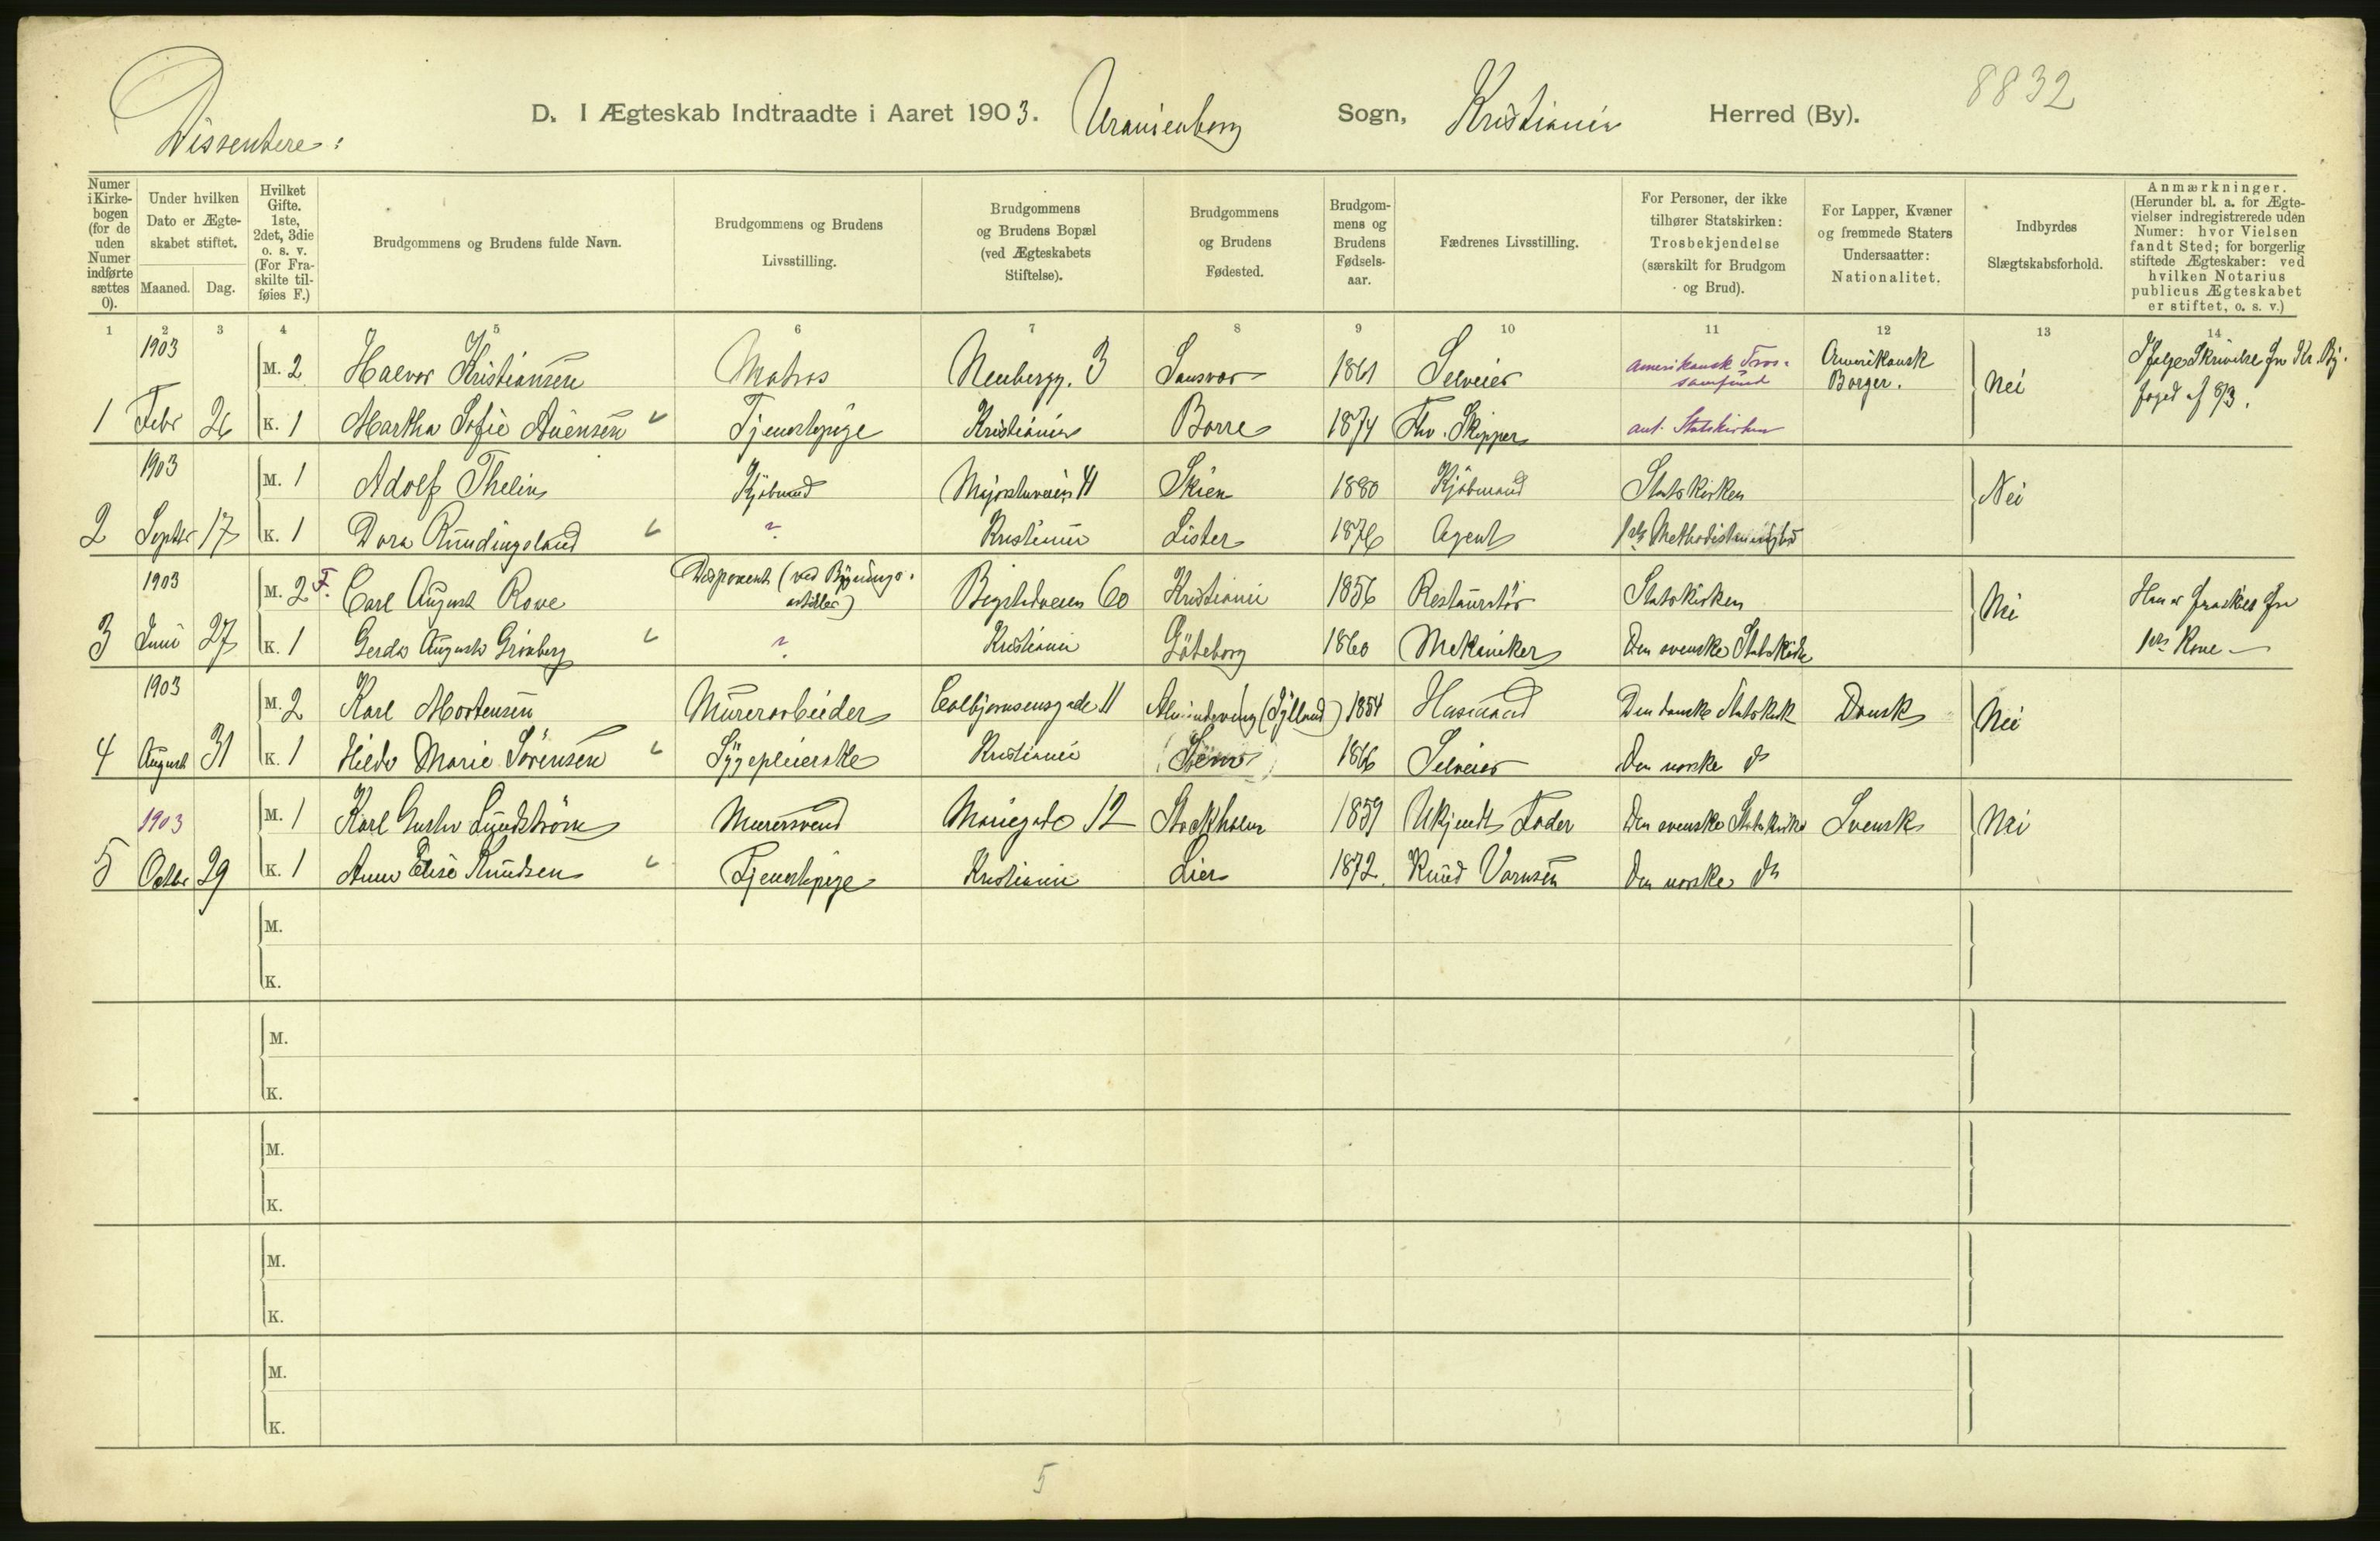 8832
Dissentere:
D. I Ægteskab Indtraadte i Aaret 1903. Uranienborg Sogn, Kristiania Herred (By).
Numer i Kirkebogen (for de uden Numer indførte sættes 0).
Under hvilken Dato er Ægteskabet stiftet.
Maaned. Dag.
Hvilket Gifte. 1ste, 2det, 3die o. s. v. (For Fraskilte tilføies F.)
Brudgommens og Brudens fulde Navn.
Brudgommens og Brudens Livsstilling.
Brudgommens og Brudens Bopæl (ved Ægteskabets Stiftelse).
Brudgommens og Brudens Fødested.
Brudgommens og Brudens Fødselsaar.
Fædrenes Livsstilling.
For Personer, der ikke tilhører Statskirken: Trosbekjendelse (særskilt for Brudgom og Brud).
For Lapper, Kvæner og fremmede Staters Undersaatter: Nationalitet.
Indbyrdes Slægtskabsforhold.
Anmærkninger. (Herunder bl. a. for Ægtevielser indregistrerede uden Numer: hvor Vielsen fandt Sted; for borgerlig stiftede Ægteskaber: ved hvilken Notarius publicus Ægteskabet er stiftet, o. s. v.)
1 2 3 4 5 6 7 8 9 10 11 12 13 14
1903 M. 2 Halvor Kristiansen Matros Neubergg. 3 Sansvær 1861 Selveier amerikansk Trossamfund Amerikansk Borger. Nei Ifølge Skrivelse fra Kr. Byfoged af 8/3.
1 Febr 26 K. 1 Martha Sofie Auensen Tjenestepige Kristiania Borre 1874 Fhv. Skipper ant. Statskirken
1903 M. 1 Adolf Thelin Kjøbmand Majorstuveien 41 Skien 1880 Kjøbmand Statskirken Nei
2 Septbr 17 K. 1 Dora Rundingsland ? Kristiania Lister 1876 Agent 1ste Methodistmenighed
1903 M. 2 F. Carl August Rove Disponent (ved Bygningsartikler) Bygdøveien 60 Kristiania 1856 Restauratør Statskirken Nei Han er fraskilt fra
3 Juni 27 K. 1 Gerda Augusta Grönberg ? Kristiania Göteborg 1860 Mekaniker Den svenske Statskirke 1ste Kone
1903 M. 2 Karl Mortensen Murerarbeider Colbjørnsensgade 11 (Jylland) 1854 Husmand Den danske Statskirke Dansk Nei
4 August 31 K. 1 Hilda Marie Sörensen Sygepleierske Kristiania 1866 Selveier Den norske do
1903 M. 1 Karl Gustav Lundström Murersvend Mariegade 12 Stockholm 1859 Ukjendt Fader Den svenske Statskirke Svensk Nei
5 Octbr 29 K. 1 Anna Elise Knudsen Tjenestepige Kristiania Lier 1872. Knud Den norske do
M.
K.
M.
K.
M.
K.
M.
K.
M.
K.
5